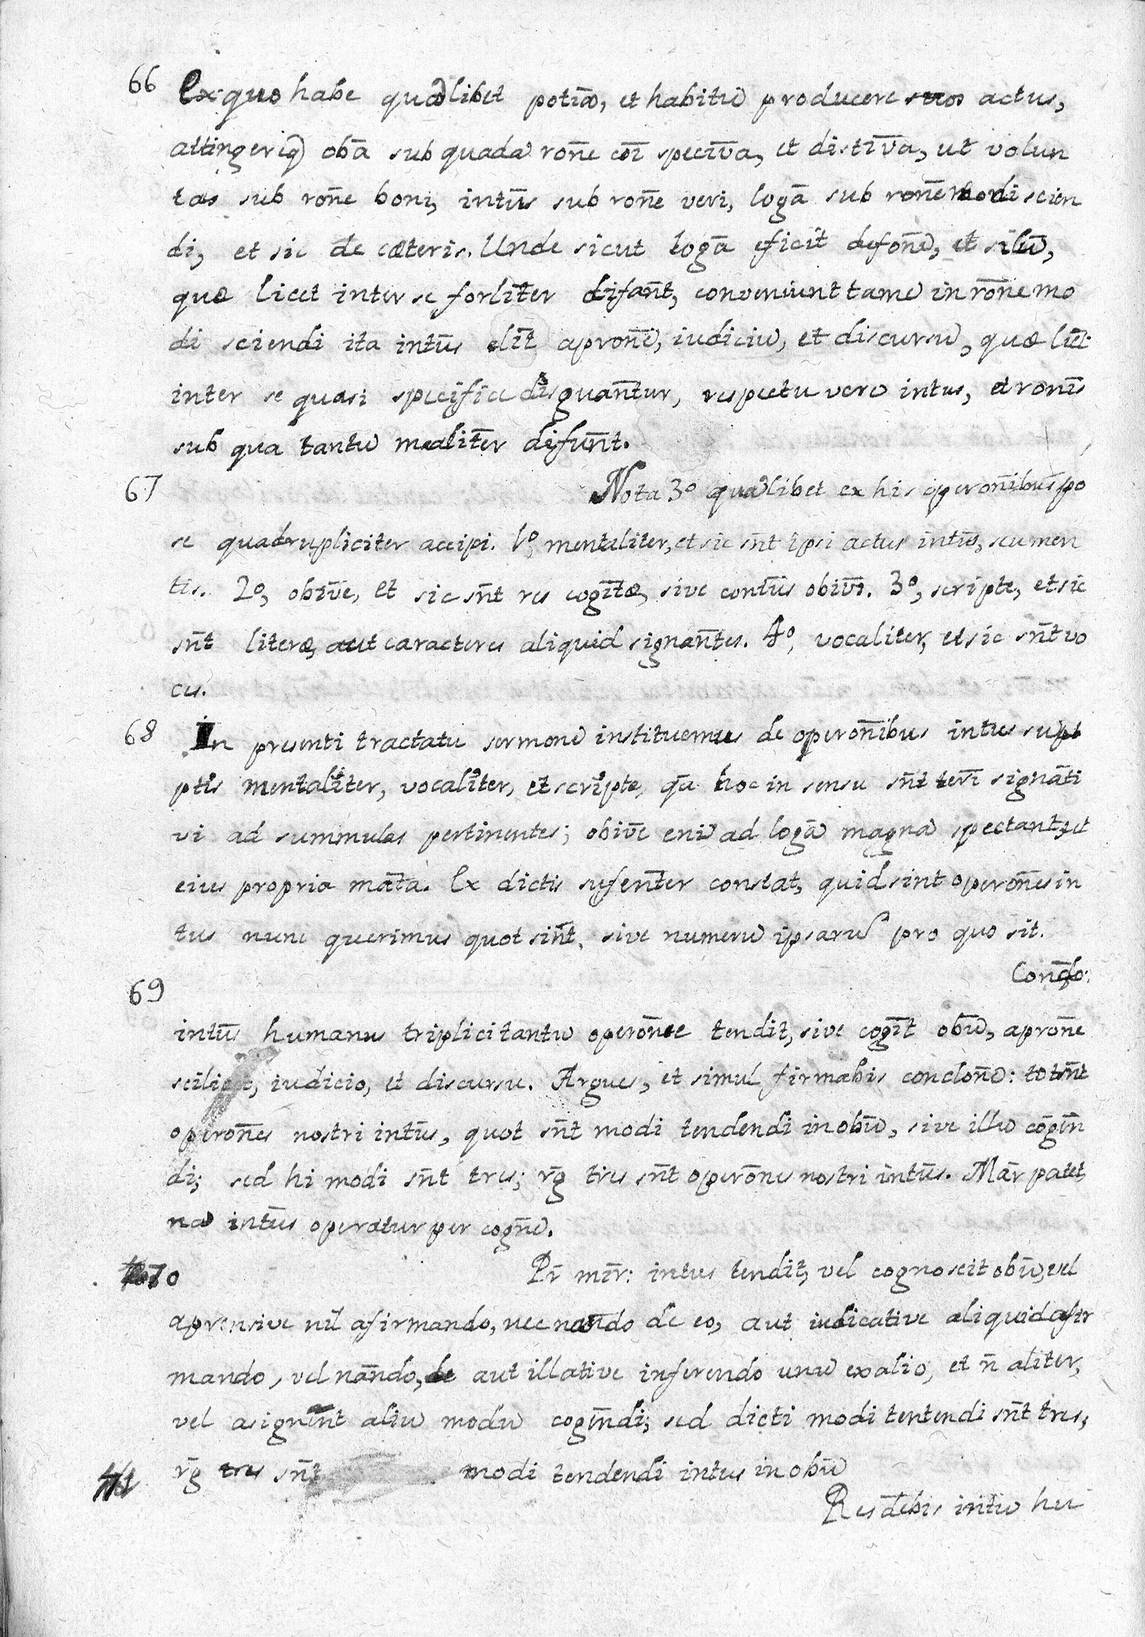 66 Ex quo habe quālibet potiā, et habitū producere suos actus,
attingeriq obā sub quada rōne cōi specīva, et distīva, ut volun
tas sub rōne boni, intūs sub rōne veri, logā sub rōne modi scien
di, et sic de cæteris. Unde sicut logā eficit defonē, et silū,
quæ licet inter se forlīter difānt, conveniunt tamē in rōne mo
di sciendi ita intūs elīt apronē, iudiciū, et discursū, quæ lict
inter se quasi specifice disguāntur, respectu vero intus, et ronīs
sub qua tantū mealīter difūnt.
67 Nota 3º quālibet ex his operonībus po
se quadrupliciter accipi. 1º, mentaliter, et sic sn̄t ipsi actus intūs, seu men
tis. 2º, obīve, et sic sn̄t res cogītæ, sive contūs obivī. 3º, scripte, et sic
sn̄t literæ, aut caracteres aliquid signāntes. 4º, vocaliter, et sic sn̄t vo
ces.
68 In presenti tractatu sermonē instituemus de operonībus intus
ptis mentalīter, vocalīter, et scripte, qā hoc in sensu sn̄t terī signāti
vi ad summulas pertinentes; obīve enī ad logā magnā spectant, et
eius propria māta. Ex dictis sufēnter constat, quid sint operōnes in
tus nunc querimus quot sīnt, sive numerū ipsarū pro quo sit.
Conclo:
69
intūs humanus triplici tantū operōnee tendit, sive cogīt obū, aprōne
scilicet, iudicio, et discursu. Argues, et simul firmabis conclonē: tot sn̄t
operōnes nostri intūs, quot sn̄t modi tendendi in obū, sive illū cōgēn
di; sed hi modi sn̄t tres; rḡ tres sn̄t operōnes nostri intūs. Mār patet,
nā intūs operatur per cogn̄e.
70 Pr̄ mīr: intus tendit, vel cognoscit obū, vel
aprensive nil afirmando, nec nāndo de eo, aut iudicative aliquid afir
mando, vel nāndo, aut illative inferendo unū ex alio, et n̄ aliter,
vel asignēnt aliū modū cogēndi; sed dicti modi tentendi sn̄t tres,
rḡ tres sn̄t modi tendendi intus in obū
Resdebis intū hu